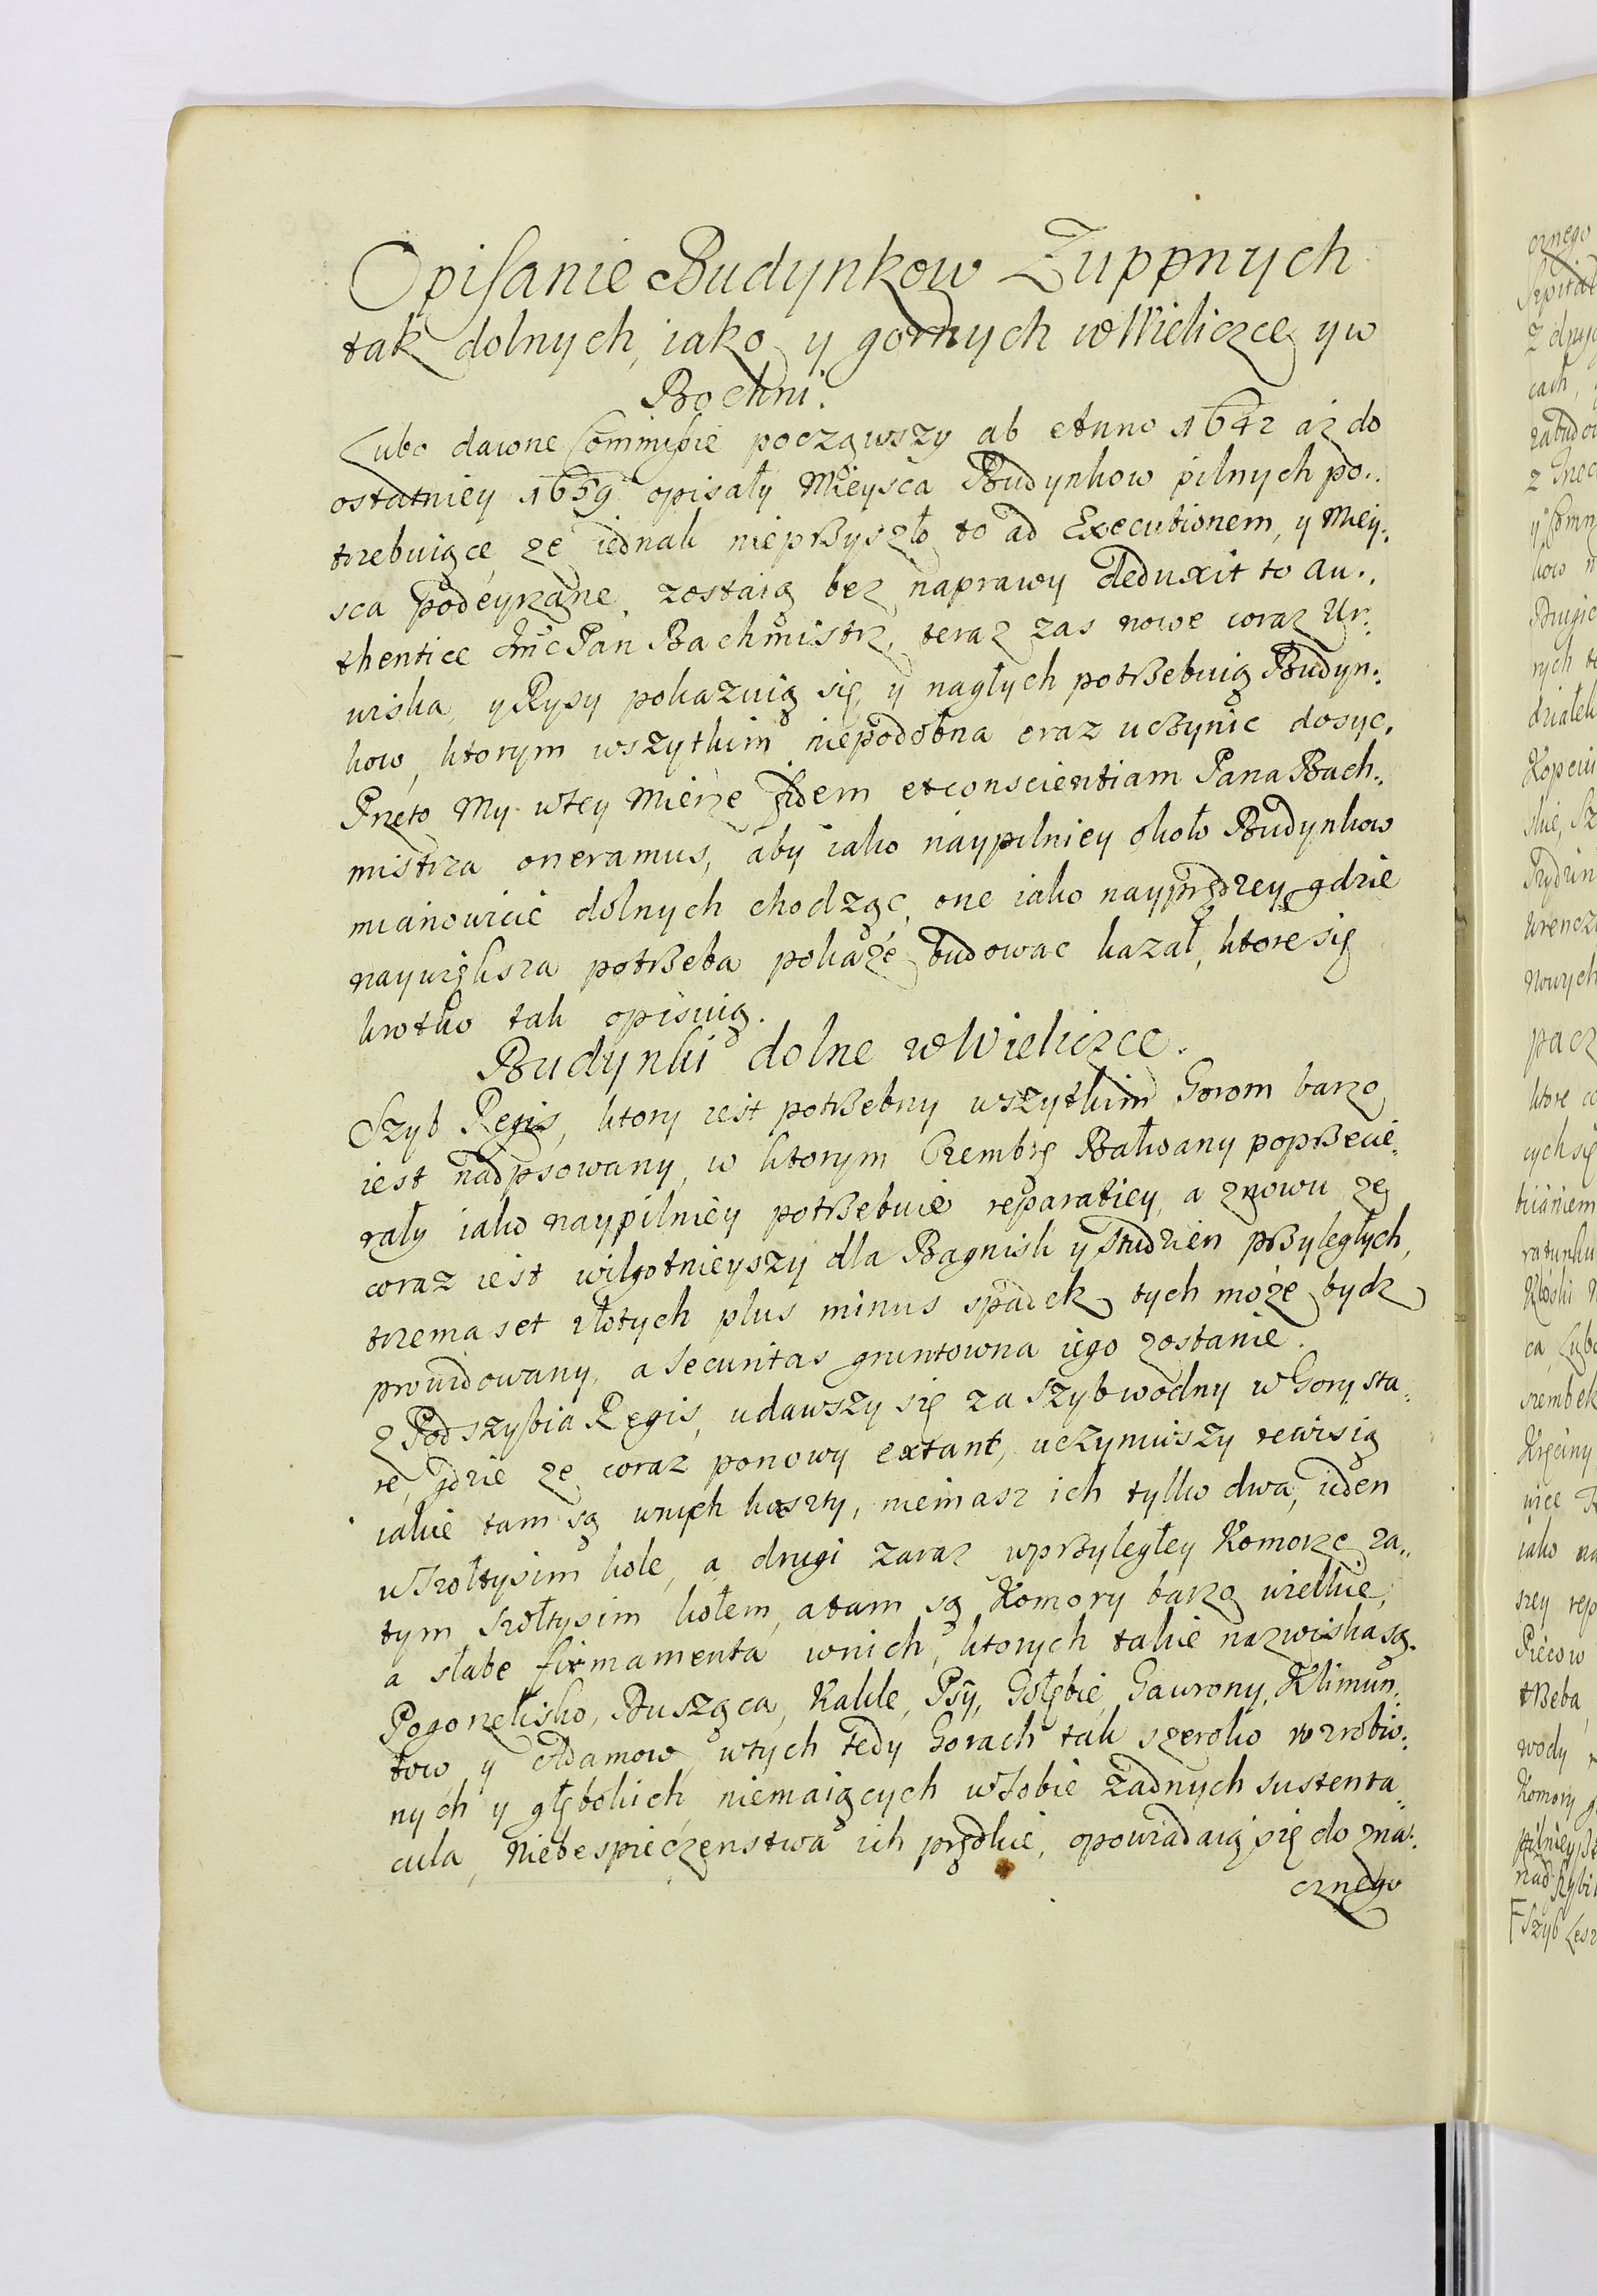 Opisanie Budynkow Zuppnych
tak dolnych, iako y gornych w Wieliczce y w
Bochni.
Lubo dawne Commissie począwszy ab Anno 1642 aż do
ostatniey 1659 opisały Mieysca Budynkow pilnych po-
trzebuiące, ze iednak nieprzyszło to ad Executionem, y Miey-
sca podeyrzane, zostaią bez naprawy deduxit to au-
thentice Jmc Pan Bachmistrz, teraz zas nowe coraz Ur-
wiska, y Rysy pokazuią się, y nagłych potrzebuią Budyn-
kow, ktorym wszytkim niepodobna oraz uczynic dosyc.
Przeto My w tey Mierze fidem et conscientiam Pana Bach-
mistrza oneramus, aby iako naypilniey około Budynkow
mianowicie dolnych chodząc, one iako nayprędzey, gdzie
naywiększa potrzeba pokaże, budowac kazał, ktore się
krotko tak opisuią.
Budynki dolne w Wieliczce.
Szyb Regis, ktory iest potrzebny wszytkim Gorom barzo
iest nadpsowany, w ktorym Czembrę Bałwany poprzecie-
rały iako naypilniey potrzebuie reparatiey, a znowu ze
coraz iest wilgotnieyszy dla Bagnisk y studzien przyległych,
trzema set złotych plus minus spadek tych może bydz
prowidowany, a securitas gruntowna iego zostanie.
Z Podszybia Regis, udawszy się za szyb wodny w Gory sta-
re, gdzie ze coraz ponowy extant, uczyniwszy rewisią
iakie tam są w nich koszty, niemasz ich tylko dwa, ieden
w Szołtysim kole, a drugi zaraz w przyległey Komorze za-
tym szołtysim kołem, a tam są Komory barzo wielkie,
a słabe firmamenta w nich, ktorych takie nazwiska są.
Pogorzelisko, Dusząca, Kakle, Psy, Gołębie, Gawrony, Klimun-
tow y Adamow, w tych tedy Gorach tak szeroko wzrobio-
nych y głębokich niemaiących w sobie żadnych sustenta-
cula, Niebespieczenstwa ich prędkie, opowiadaią się do zna-
cznego